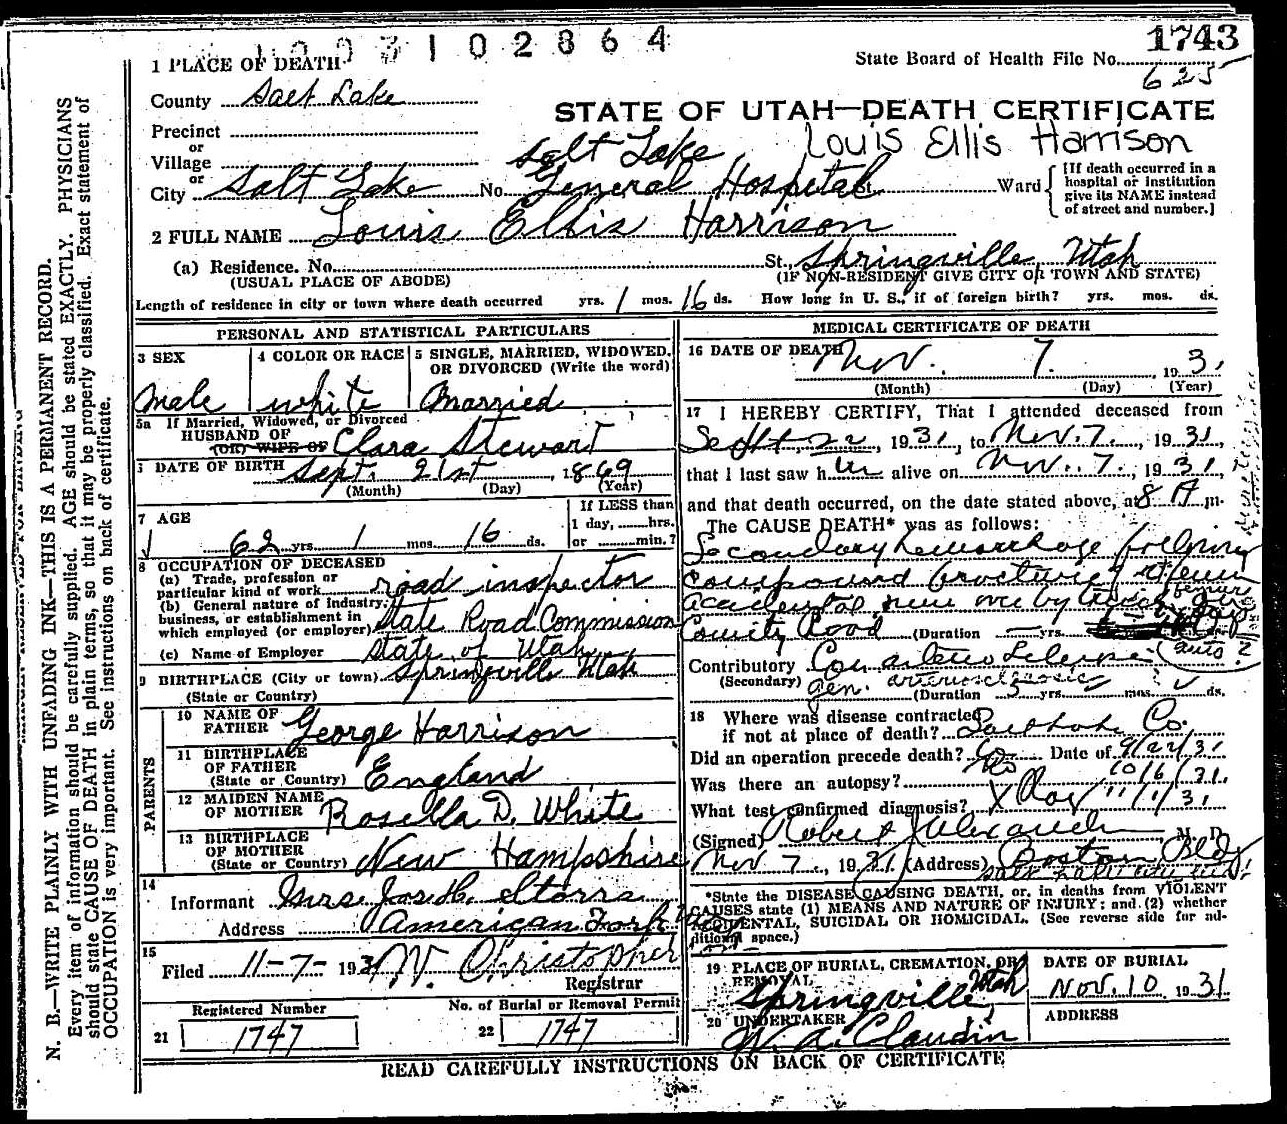 1003102864
1743
State Board of Health File No.
635
1 PLACE OF DEATH
County Salt Lake
STATE OF UTAH—DEATH CERTIFICATE
Precinct
or
Louis Ellis Harrison
Village
or
Salt Lake
City Salt Lake No. General Hospital St. Ward
[If death occurred in a hospital or institution give its NAME instead of street and number.]
2 FULL NAME Louis Ellis Harrison
(a) Residence. No. St. Springville, Utah
(USUAL PLACE OF ABODE) (IF NON-RESIDENT GIVE CITY OR TOWN AND STATE)
Length of residence in city or town where death occurred yrs. 1 mos. 16 ds. How long in U. S., if of foreign birth? yrs. mos. ds.
PERSONAL AND STATISTICAL PARTICULARS
3 SEX
Male
4 COLOR OR RACE
white
5 SINGLE, MARRIED, WIDOWED, OR DIVORCED (Write the word)
Married
5a If Married, Widowed, or Divorced
HUSBAND OF
(OR) WIFE OF Clara Stewart
6 DATE OF BIRTH Sept. 21st, 1869
(Month) (Day) (Year)
7 AGE
62 yrs. 1 mos. 16 ds.
If LESS than
1 day, hrs.
or min.?
8 OCCUPATION OF DECEASED
(a) Trade, profession or
particular kind of work road inspector
(b) General nature of industry,
business, or establishment in
which employed (or employer) State Road Commission
(c) Name of Employer state of Utah
9 BIRTHPLACE (City or town) Springville Utah
(State or Country)
PARENTS
10 NAME OF
FATHER George Harrison
11 BIRTHPLACE
OF FATHER
(State or Country) England
12 MAIDEN NAME
OF MOTHER Rosella D. White
13 BIRTHPLACE
OF MOTHER
(State or Country) New Hampshire
14
Informant Mrs. Jos. H. Storrs
Address American Fork
15
Filed 11-7- 1931 W. Christopher
Registrar
Registered Number
21 1747
No. of Burial or Removal Permit
22 1747
MEDICAL CERTIFICATE OF DEATH
16 DATE OF DEATH Nov. 7 1931
(Month) (Day) (Year)
17 I HEREBY CERTIFY, That I attended deceased from
Sept 22, 1931, to Nov. 7, 1931,
that I last saw him alive on Nov. 7, 1931,
and that death occurred, on the date stated above, at 8 A m.
The CAUSE DEATH* was as follows:
Secondary hemorrhage following
compound fracture femur
femur
Accidental run over by
County Road (Duration yrs.
auto?
Contributory
(Secondary) gen. arteriosclerosis
(Duration 5 yrs. mos. ds.
18 Where was disease contracted
if not at place of death? Salt Lake Co.
Did an operation precede death? Date of 9/22/31
Was there an autopsy? No 10/6/31
What test confirmed diagnosis? X Ray 11/1/31
(Signed) Robert Alexander M. D.
Nov 7, 1931 (Address) Boston Bldg
*State the DISEASE CAUSING DEATH, or, in deaths from VIOLENT
CAUSES state (1) MEANS AND NATURE OF INJURY; and (2) whether
ACCIDENTAL, SUICIDAL OR HOMICIDAL. (See reverse side for ad-
ditional space.)
19 PLACE OF BURIAL, CREMATION, OR
REMOVAL Springville Utah
DATE OF BURIAL
Nov. 10 1931
20 UNDERTAKER
W. A. Claudin
ADDRESS
READ CAREFULLY INSTRUCTIONS ON BACK OF CERTIFICATE
N. B.—WRITE PLAINLY WITH UNFADING INK—THIS IS A PERMANENT RECORD.
Every item of information should be carefully supplied. AGE should be stated EXACTLY. PHYSICIANS
should state CAUSE OF DEATH in plain terms, so that it may be properly classified. Exact statement of
OCCUPATION is very important. See instructions on back of certificate.